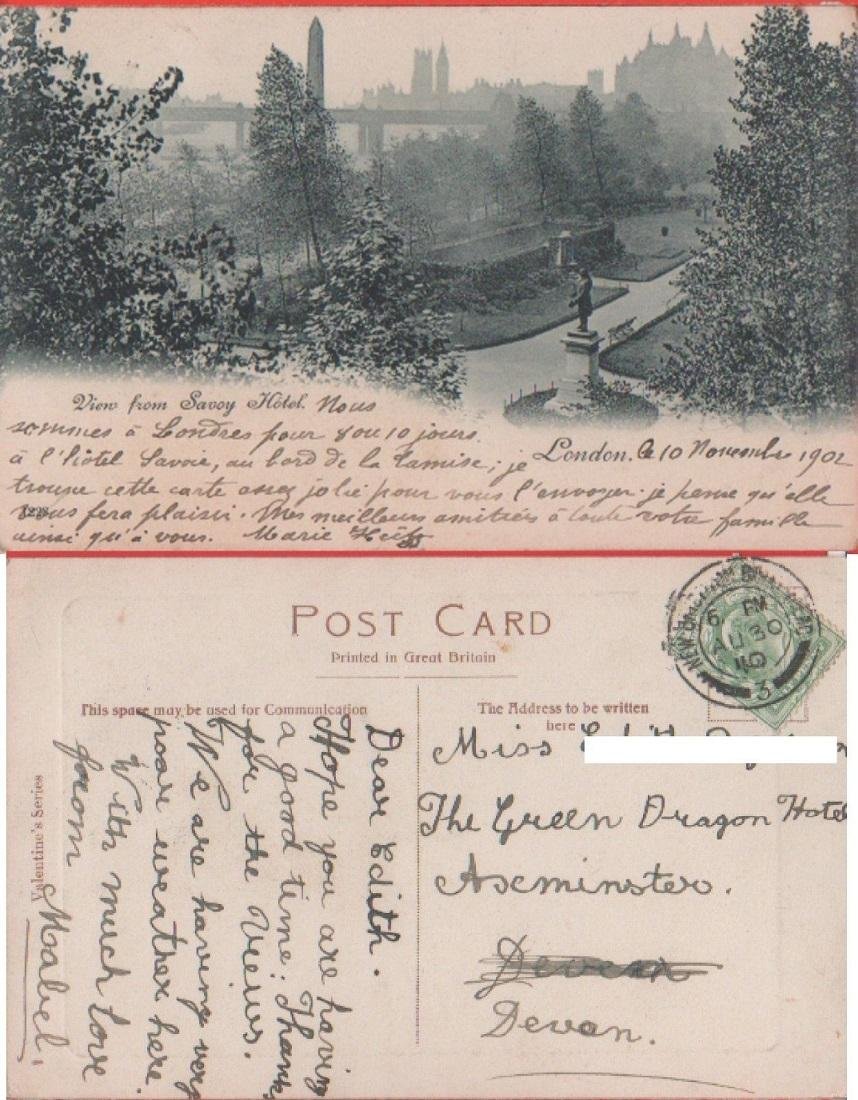 View from Savoy Hôtel. Nous
sommes à Londres pour 8 ou 10 jours
à l'hôtel Savoie, au bord de la Tamise; je
London. le 10 Novembre 1902
trouve cette carte assez jolie pour vous l'envoyer. je pense qu'elle
vous fera plaisir. Mes meilleurs amitiées à toute votre famille
ainsi qu'à vous. Marie
POST CARD
Printed in Great Britain
This space may be used for Communication
The Address to be written
here
6. PM
AU 30
10
3
Valentine's Series
Dear Edith.
Hope you are having
a good time. Thanks
for the Views.
We are having very
poor weather here.
With much love
from
Mabel.
Miss
The Green Dragon Hotel
Axeminster.
Devon
Devon.